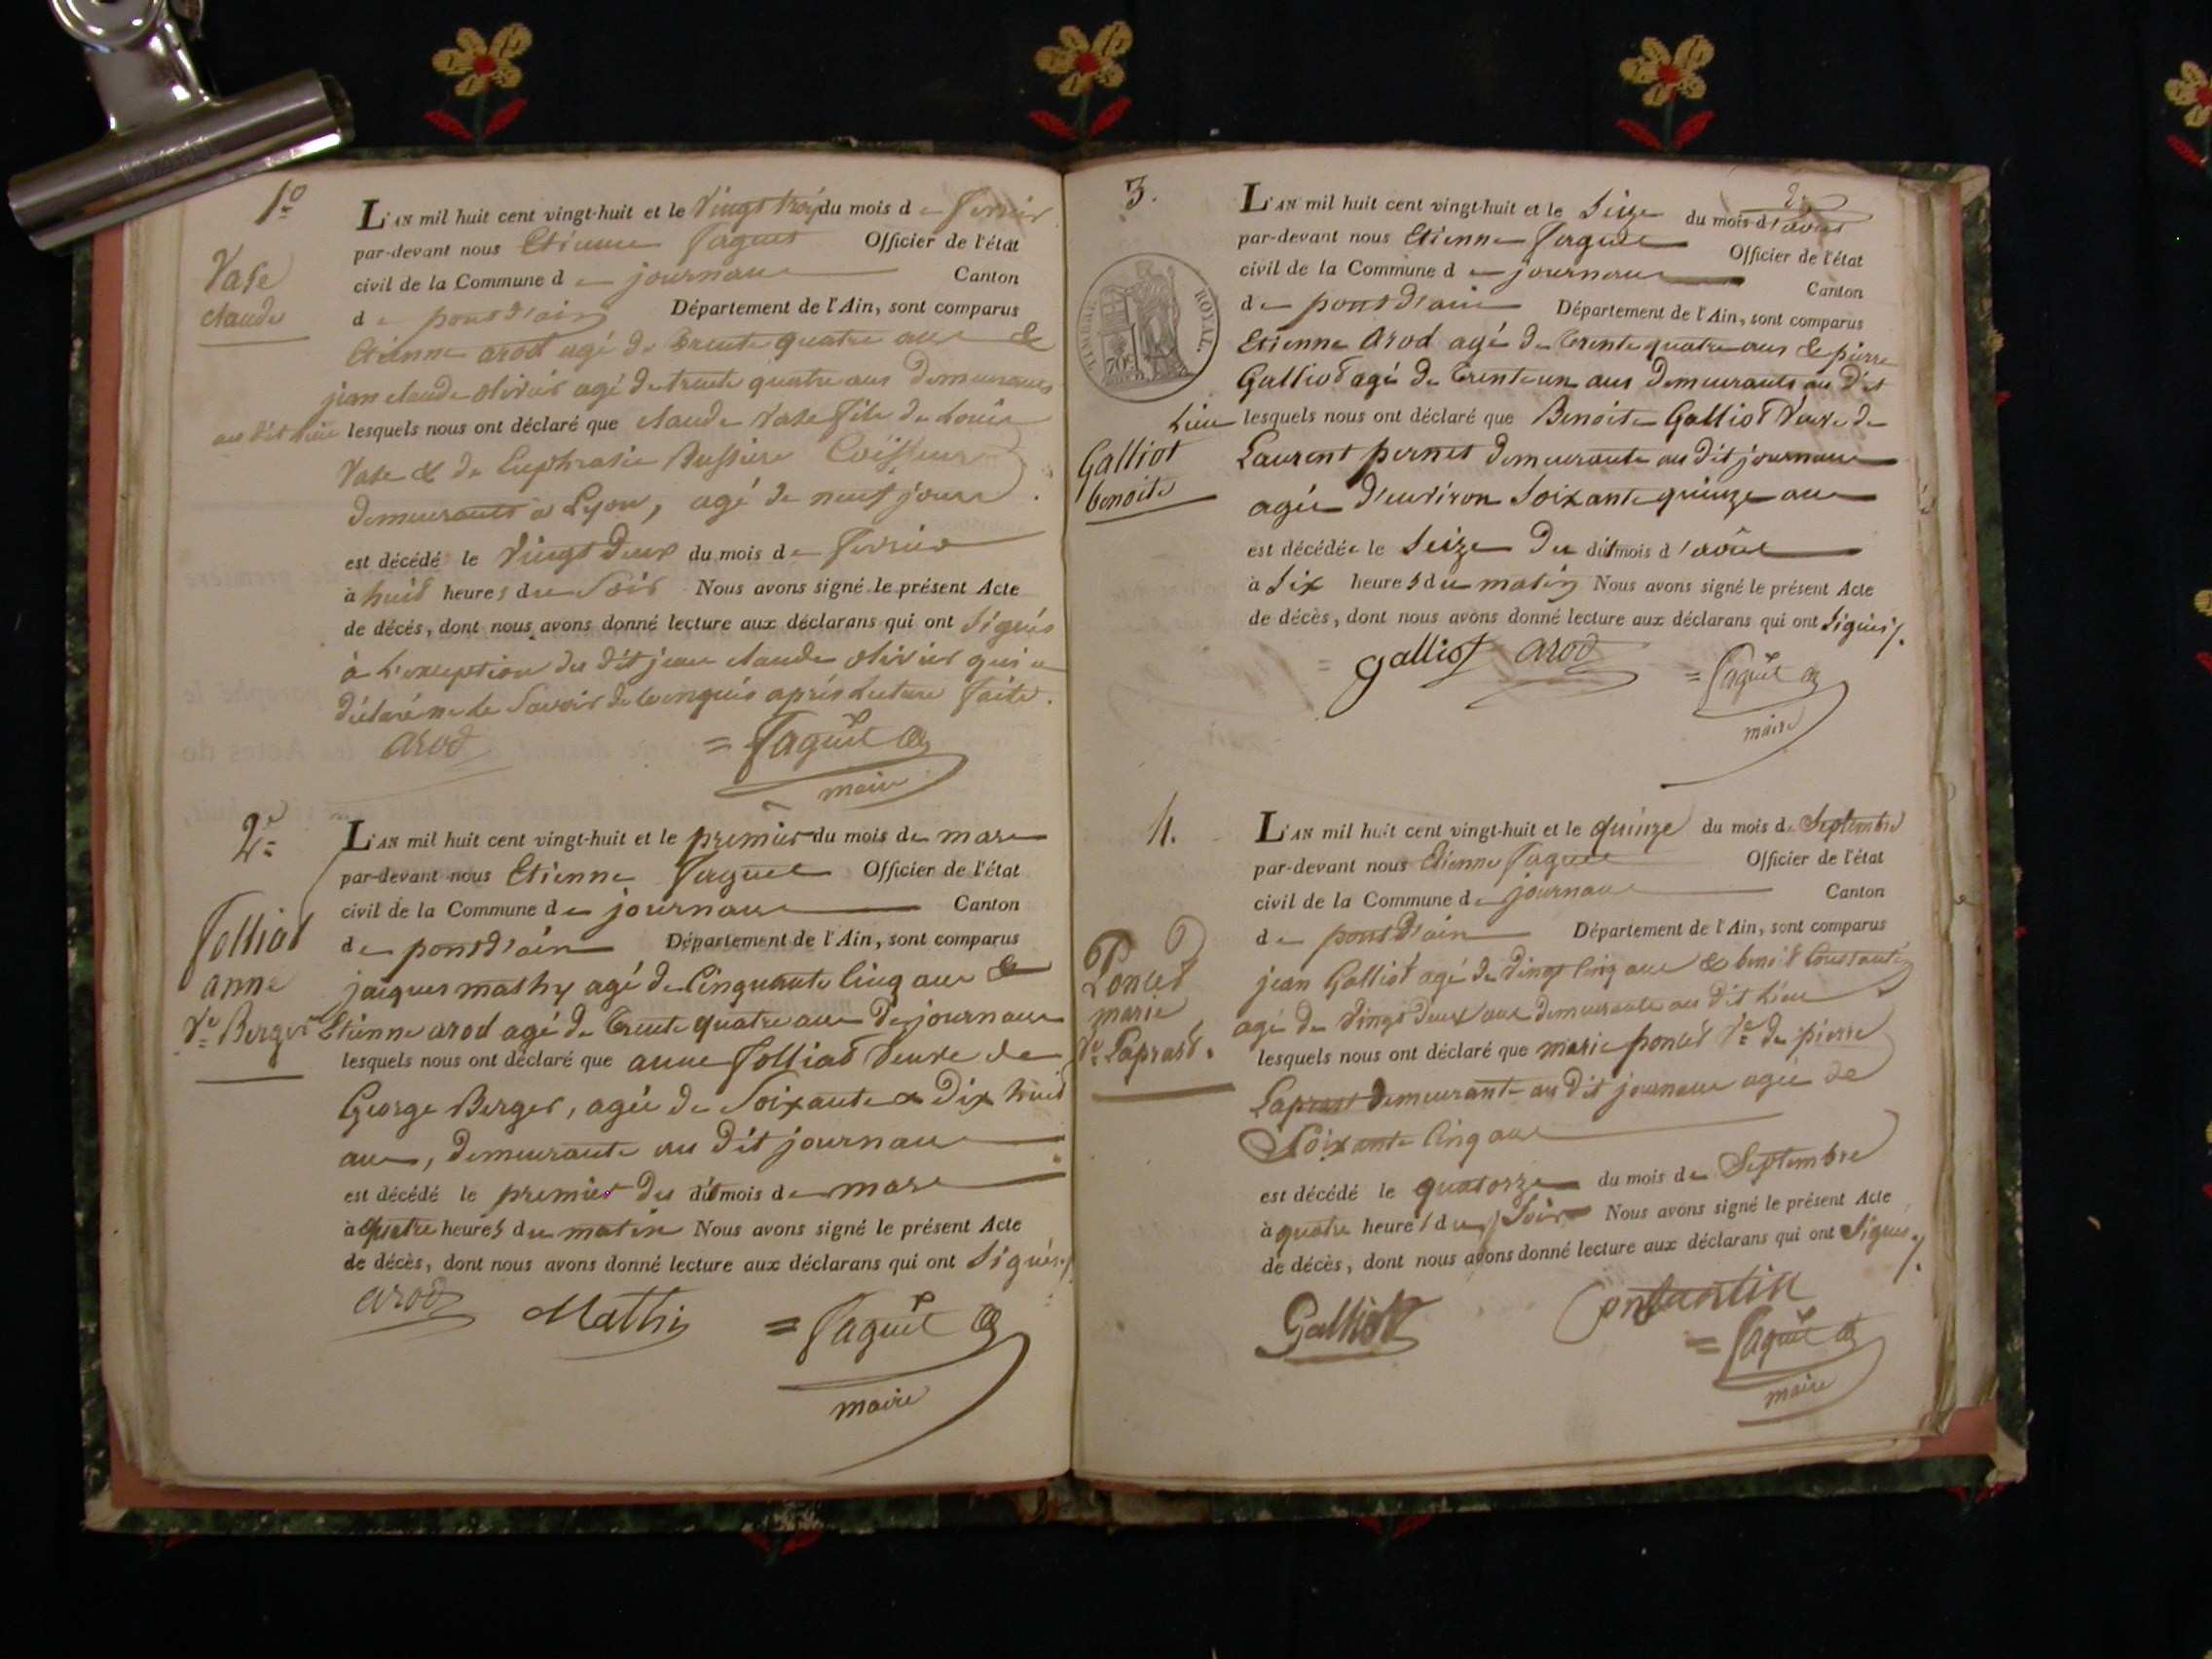 1º
Vase
claude
L'AN mil huit cent vingt-huit et le Vingt trois du mois de fevrier
par-devant nous Etienne Faguet Officier de l'état
civil de la Commune de journans Canton
de pontd'ain Département de l'Ain, sont comparus
Etienne arod agé de Trente quatre ans &
jean claude olivier agé de trente quatre ans demeurants
au dit lieu lesquels nous ont déclaré que claude Vase fils de Louis
Vase & de Euphrasie Bussiere Coiffeur
demeurants à Lyon, agé de neuf jours
est décédé le Vingt deux du mois de fevrier
à huit heures du Soir Nous avons signé le présent Acte
de décès, dont nous avons donné lecture aux déclarans qui ont Signés
à l'exception du dit jean claude olivier qui a
déclaré ne le Savoir de ce enquis après Lecture faite.
arod = Faguet
maire
2e
Folliat
anne
Ve Berger
L'AN mil huit cent vingt-huit et le premier du mois de mars
par-devant nous Etienne Faguet Officier de l'état
civil de la Commune de journans Canton
de pontd'ain Département de l'Ain, sont comparus
jacques mathy agé de Cinquante cinq ans &
Etienne arod agé de Trente quatre ans de journans
lesquels nous ont déclaré que anne Folliat Veuve de
George Berger, agée de Soixante & Dix huit
ans, demeurante au dit journans
est décédé le premier du dit mois de mars
à quatre heures du matin Nous avons signé le présent Acte
de décès, dont nous avons donné lecture aux déclarans qui ont Signés
arod Mathi = Faguet
maire
3.
TIMBRE ROYAL.
70c
Galliot
benoite
L'AN mil huit cent vingt-huit et le Seize du mois d'aout
par-devant nous Etienne Faguet Officier de l'état
civil de la Commune de journans Canton
de pontd'ain Département de l'Ain, sont comparus
Etienne Arod agé de Trente quatre ans & pierre
Galliot agé de Trente un ans demeurants au dit
Lieu lesquels nous ont déclaré que Benoite Galliot Veuve de
Laurent pernet demeurante au dit journans
agée d'environ Soixante quinze ans
est décédée le Seize du dit mois d'août
à Six heures du matin Nous avons signé le présent Acte
de décès, dont nous avons donné lecture aux déclarans qui ont Signés
= galliot arod = Faguet
maire
4.
Poncet
marie
Ve Laprast.
L'AN mil huit cent vingt-huit et le quinze du mois de Septembre
par-devant nous Etienne Faguet Officier de l'état
civil de la Commune de journans Canton
de pontd'ain Département de l'Ain, sont comparus
jean Galliot agé de Vingt Cinq ans & benoit Constantin
agé de Vingt deux ans demeurants au dit Lieu
lesquels nous ont déclaré que marie poncet Ve de pierre
Laprast demeurante au dit journans agée de
Soixante Cinq ans
est décédé le quatorze du mois de Septembre
à quatre heures du Soir Nous avons signé le présent Acte
de décès, dont nous avons donné lecture aux déclarans qui ont Signés
Galliot Constantin
= Faguet
maire